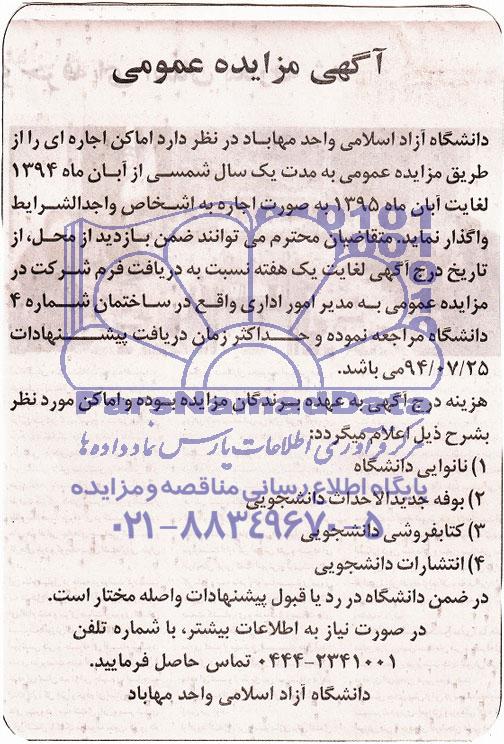 آگهی مزایده عمومی
دانشگاه آزاد اسلامی واحد مهاباد در نظر دارد اماکن اجاره ای را از
طریق مزایده عمومی به مدت یک سال شمسی از آبان ماه ۱۳۹۴
لغایت آبان ماه ۱۳۹۵ به صورت اجاره به اشخاص واجدالشرایط
واگذار نماید. متقاضیان محترم می توانند ضمن بازدید از محل، از
تاریخ درج آگهی لغایت یک هفته نسبت به دریافت فرم شرکت در
مزایده عمومی به مدیر امور اداری واقع در ساختمان شماره ۴
دانشگاه مراجعه نموده و حداکثر زمان دریافت پیشنهادات
۹۴/۰۷/۲۵می باشد.
هزینه درج آگهی به عهده برندگان مزایده بوده و اماکن مورد نظر
بشرح ذیل اعلام میگردد:
۱) نانوایی دانشگاه
۲) بوفه جدیدالاحداث دانشجویی
۳) کتابفروشی دانشجویی
۴) انتشارات دانشجویی
در ضمن دانشگاه در رد یا قبول پیشنهادات واصله مختار است.
در صورت نیاز به اطلاعات بیشتر، با شماره تلفن
۰۴۴۴-۲۳۴۱۰۰۱ تماس حاصل فرمایید.
دانشگاه آزاد اسلامی واحد مهاباد
ParsNamadData
مرکز فرآوری اطلاعات پارس نماد داده ها
پایگاه اطلاع رسانی مناقصه و مزایده
۰۲۱-۸۸۳۴۹۶۷۰-۵